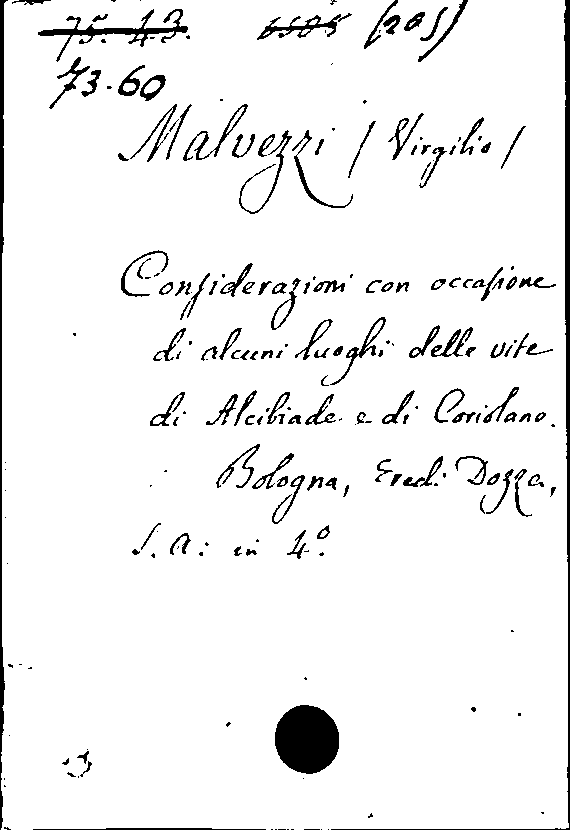 75. 43. 6505 (205)
73.60
Malvezzi / Virgilio /
Conſiderazioni con occaſione
di alcuni luoghi delle vite
di Alcibiade e di Coriolano.
Bologna, Eredi Dozza,
S. a. in 4º.